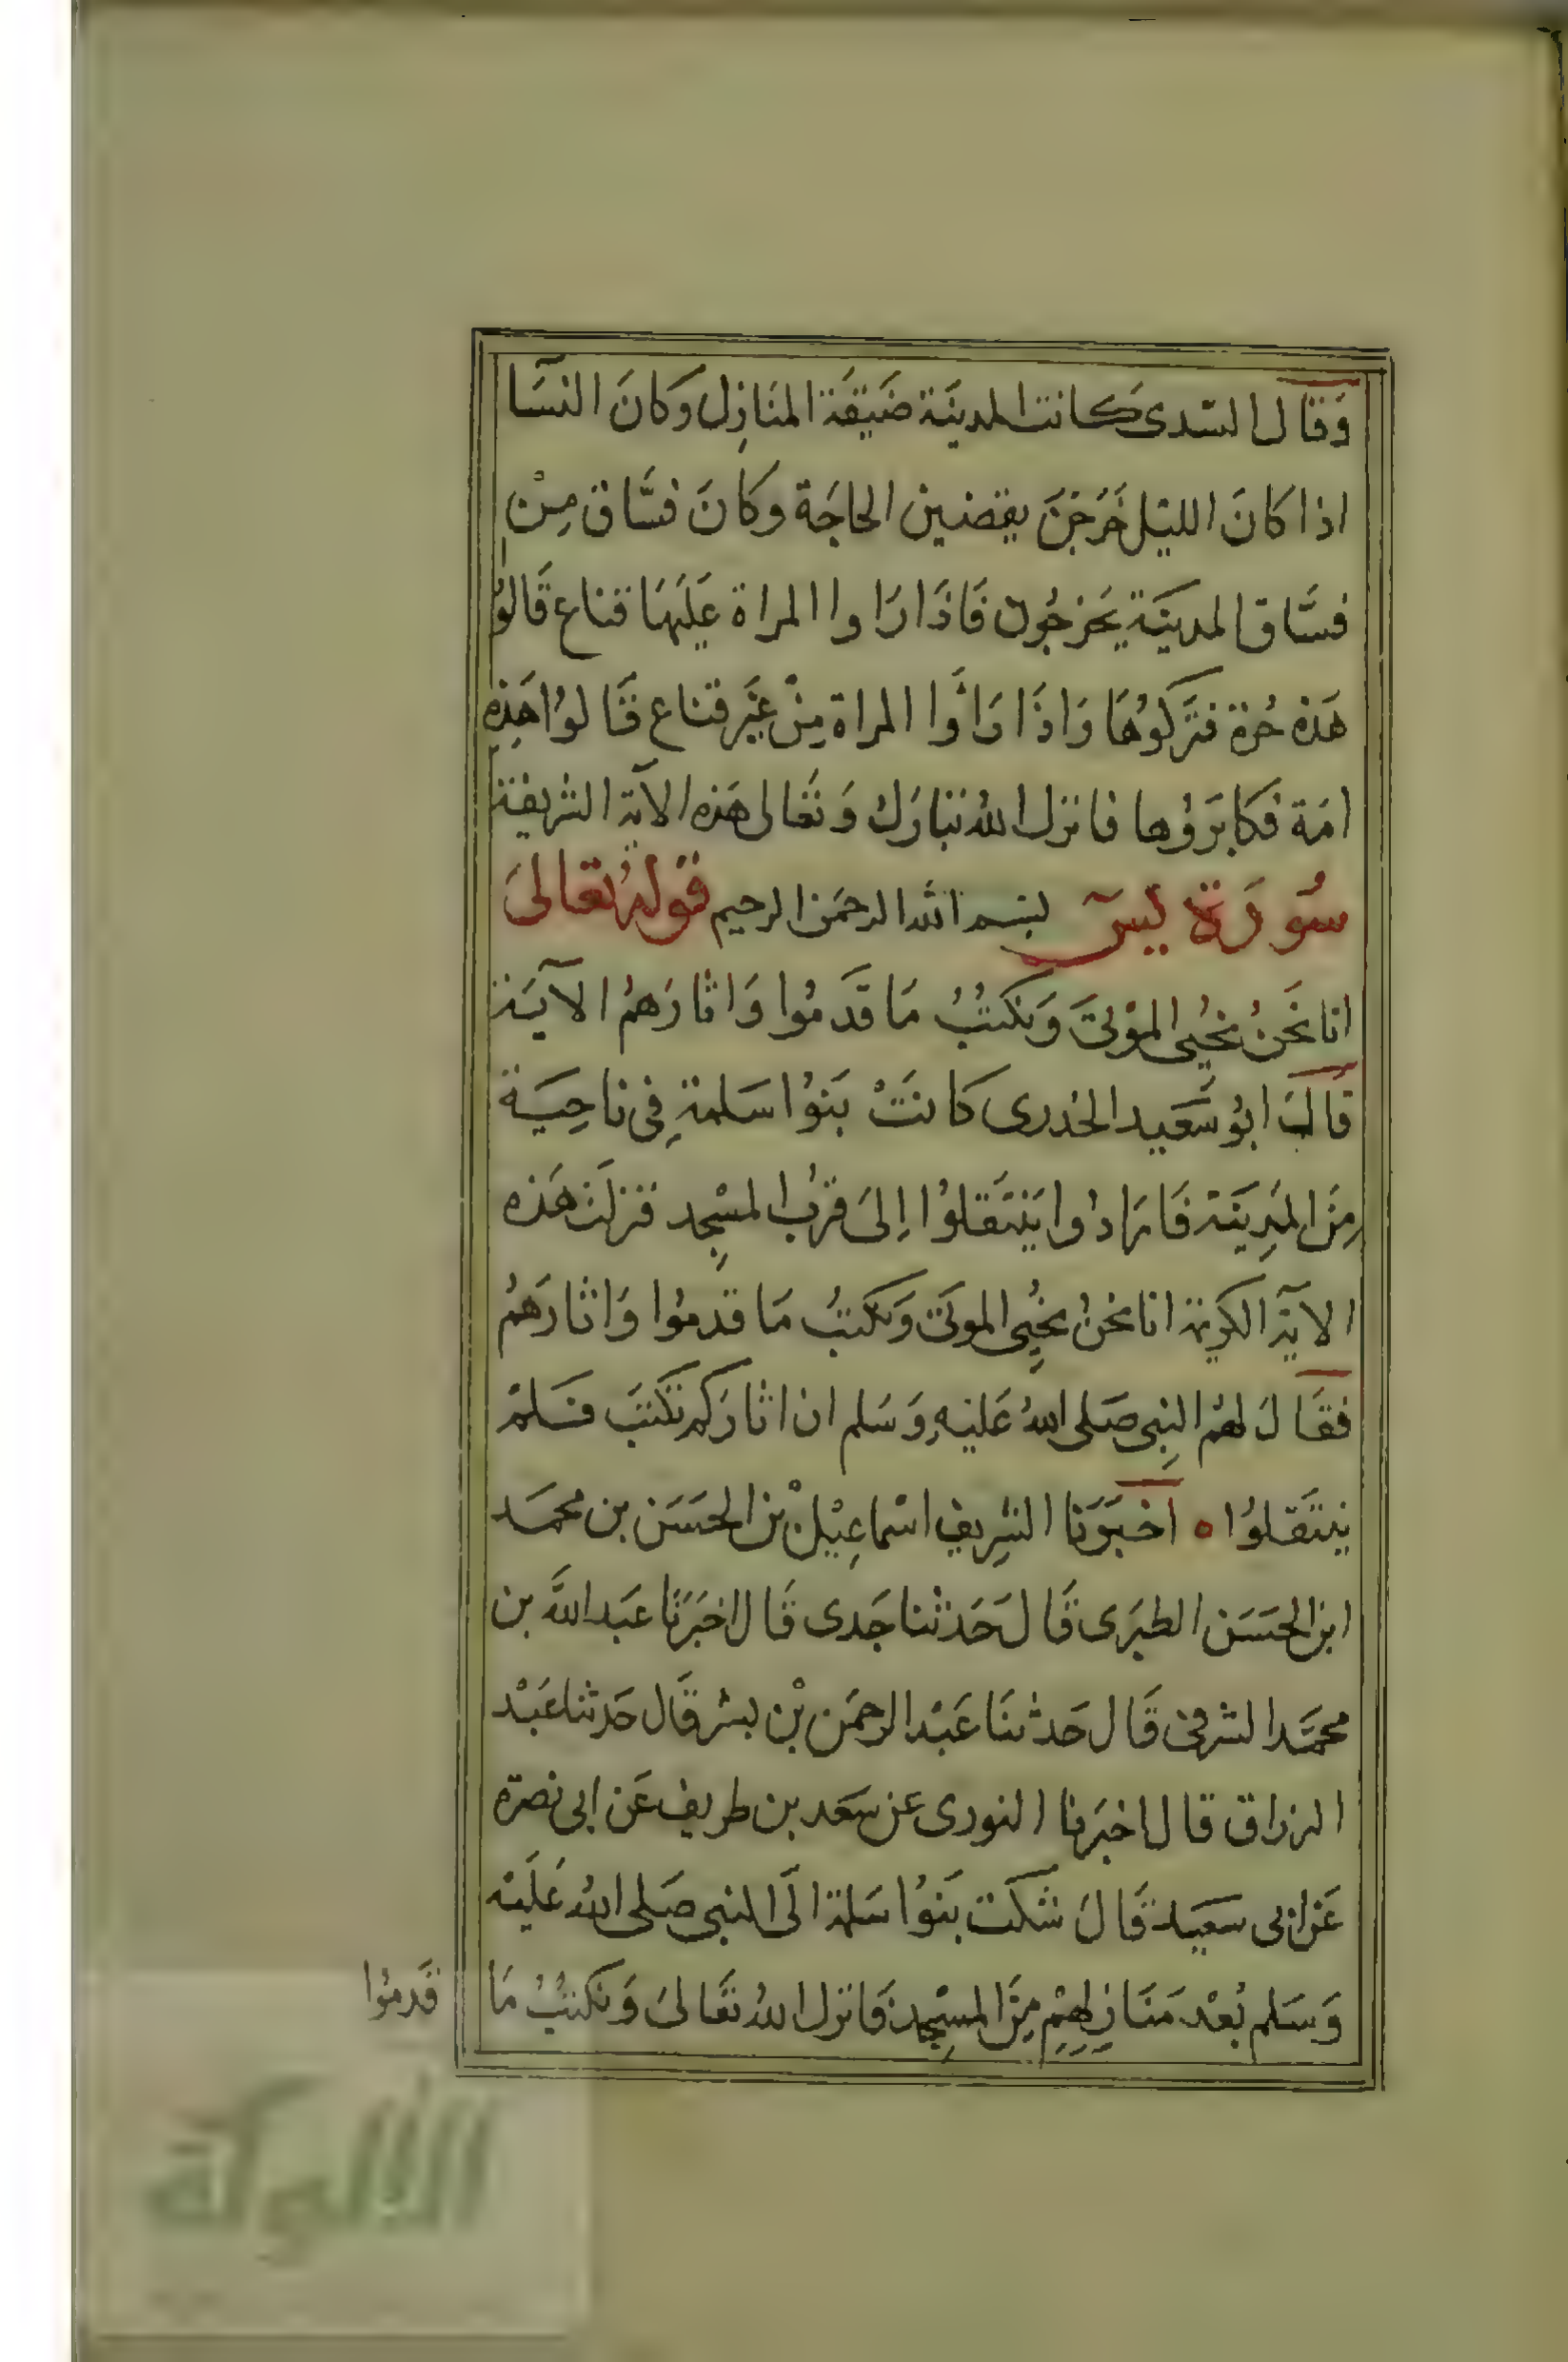 وَقَالَ السّدى كَانت المدينَة ضَيقَة المنَازِل وَكانَ النسَا
اذا كانَ الليْل خَرَجْنَ يقضين الحاجَة وكانَ فسَّاق مِنْ
فسَّاق المدينَة يَخرجُون فَاذَا رَاوا المراة عَليهَا قناع قَالوُا
هَذه حُرة فتركوُهَا وَاذَا رَاَوا المراة مِنْ غَيْر قناع قَالوُا هَذِهِ
امَة فكابَروُها فانزل اللهُ تبَارَك وَتعَالى هَذه الآية الشريفة
سُورَة يسٓ بسم الله الرحمَن الرحيم قولهُ تعَالىَ
انا نَحنُ نحُيِى الموْتىَ وَنكتُبُ مَا قَدَمُوا وَاثارَهمُ الآيَة
قالَ ابوُ سَعيد الخدرى كانَتْ بَنوُا سَلمةِ فى ناحِيَة
مِنَ المدِينَة فَارَادُوا يَنتَقلوُا اِلىَ قربُ المسْجِد فنزلَت هَذه
الآيَة الكريمة انا نحنُ نحُيِى الموتىَ وَنكتبُ مَا قدموُا وَاثارَهمُ
فقَالَ لهمُ النبِى صَلى اللهُ عَليْهِ وَسَلم ان اثارَكم تكتبَ فَلمْ
ينتَقلوُا ه اَخبَرَنا الشرِيف اسْماعِيْل بْن الحَسَن بن محمَد
ابن الحَسَن الطبَرى قَالَ حَدثنا جَدى قَال اخبَرنَا عَبد اللَّه بن
محمَّد الشرقى قَال حَدثنَا عَبْد الرحمَن بْن بشر قَال حَدثنا عَبْد
الرزاق قال اخبَرنا الثورى عن سَعد بن طريف عَن ابى نصرة
عَن ابى سعَيد قَالَ شكَت بَنوُا سَلمة الَى النبى صَلى اللهُ عَلَيْه
وَسَلم بُعْد مَنَازِلهِمْ مِنَ المسْجِد فَانزل اللهُ تعَالىَ وَنكتُبُ مَا
قَدموُا
الألوكة